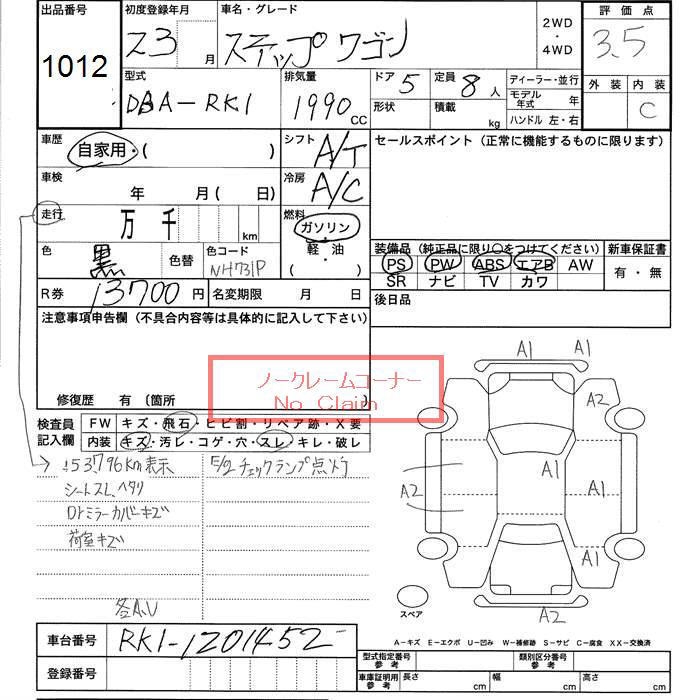 出品番号 初度登録年月 車名・グレード 2WD・4WD 評価点
1012 23 月 ステップワゴン 3.5
型式 排気量 ドア 5 定員 8 人 ディーラー・並行 外装 内装
DBA-RK1 1990 CC 形状 積載 kg モデル年式 年 C
ハンドル 左・右
車歴 自家用・( ) シフト A/T セールスポイント(正常に機能するものに限ります)
車検 年 月( 日) 冷房 A/C
走行 万 千 km 燃料 ガソリン
軽・油
( ・ )
色 黒 色替 色コード NH731P 装備品(純正品に限り○をつけてください) 新車保証書
PS PW ABS エアB AW 有・無
SR ナビ TV カワ
R券 13700 円 名変期限 月 日 後日品
注意事項申告欄(不具合内容等は具体的に記入して下さい)
ノークレームコーナー
No Claim
修復歴 有 〔箇所
検査員記入欄 FW キズ・飛石・ヒビ割・リペア跡・X要
内装 キズ・汚レ・コゲ・穴・スレ・キレ・破レ
153,796km表示 チェックランプ点灯
シートスレ、ヘタリ
Drミラーカバーキズ
荷室キズ
各A,U
A1 A1
A2
A1 A1
A2
A1
A2
スペア
車台番号 RK1-1201452
登録番号
A-キズ E-エクボ U-凹み W-補修跡 S-サビ C-腐食 XX-交換済
型式指定番号 参考 類別区分番号 参考
車庫証明用 参考 長さ cm 幅 cm 高さ cm